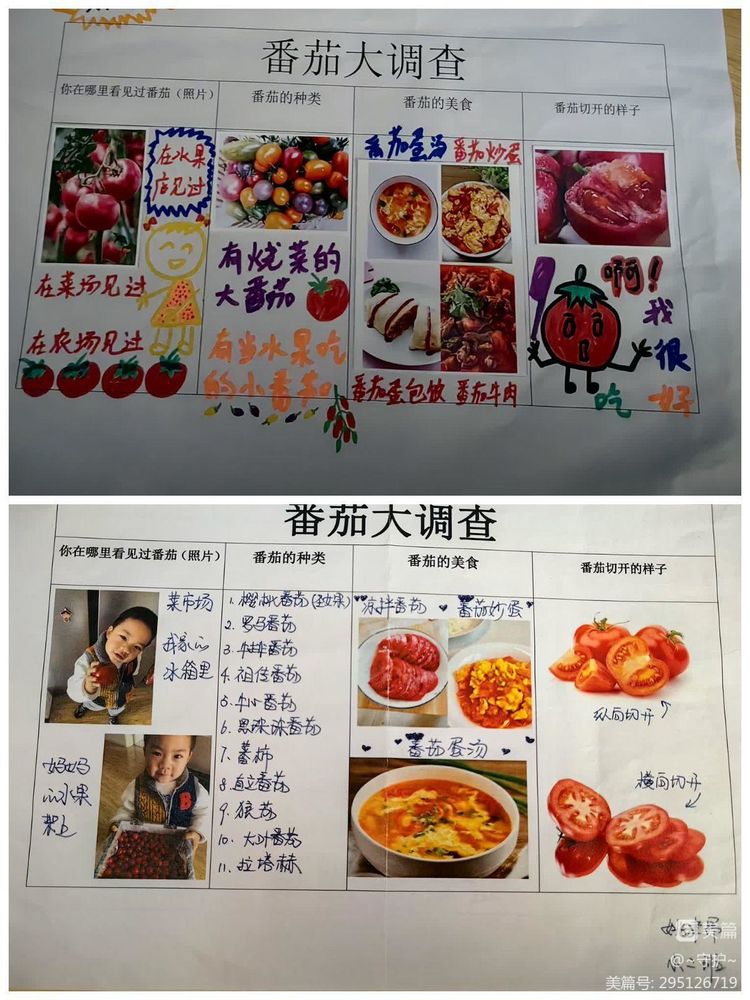 番茄大调查
你在哪里看见过番茄（照片）
番茄的种类
番茄的美食
番茄切开的样子
在水果
店见过
在菜场见过
在农场见过
有烧菜的
大番茄
有当水果吃
的小番茄
番茄蛋汤 番茄炒蛋
番茄蛋包饭 番茄牛肉
啊！
我
很
好
吃
番茄大调查
你在哪里看见过番茄（照片）
番茄的种类
番茄的美食
番茄切开的样子
菜市场
我家的
冰箱里
妈妈
的水果
架上
1. 樱桃番茄(圣女果)
2. 罗马番茄
3. 牛排番茄
4. 祖传番茄
5. 牛心番茄
6. 黑珍珠番茄
7. 蕃柿
8. 直立番茄
9. 狼茄
10. 大叶番茄
11. 拉塔赫
凉拌番茄 番茄炒蛋
番茄蛋汤
纵向切开
横向切开
小二班
美篇
@~守护~
美篇号: 295126719